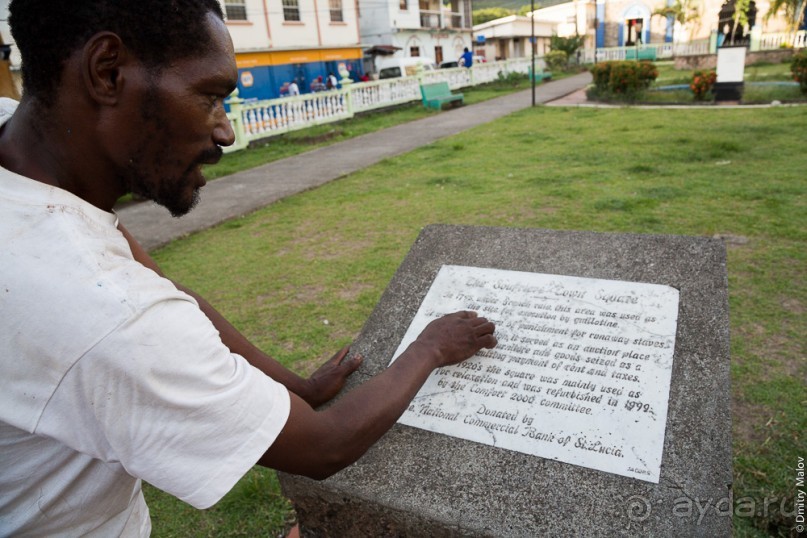 The Soufriere Town Square
In 1775, under French rule, this area was used as
the site for execution by guillotine
punishment for runaway slaves.
it served as an auction place
and goods seized as a
payment of rent and taxes.
1920's the square was mainly used as
relaxation and was refurbished in 1999
by the Comfort 2000 committee.
Donated by
National Commercial Bank of St. Lucia.
©Dmitry Malov
ayda.ru